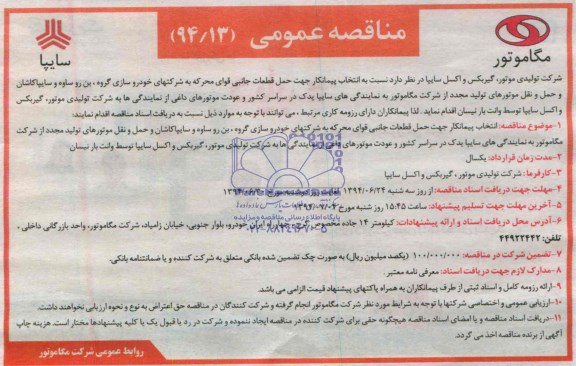 مناقصه عمومی (۹۴/۱۳)
مگاموتور
سایپا
شرکت تولیدی موتور، گیربکس و اکسل سایپا در نظر دارد نسبت به انتخاب پیمانکار جهت حمل قطعات جانبی قوای محرکه به شرکتهای خودرو سازی گروه ، بن رو ساوه و سایپاکاشان
و حمل و نقل موتورهای تولید مجدد از شرکت مگاموتور به نمایندگی های سایپا یدک در سراسر کشور و عودت موتورهای داغی از نمایندگی ها به شرکت تولیدی موتور، گیربکس
و اکسل سایپا توسط وانت بار نیسان اقدام نماید. لذا پیمانکاران دارای رزومه کاری مرتبط ، می توانند با توجه به موارد ذیل نسبت به دریافت اسناد مناقصه اقدام نمایند:
۱-موضوع مناقصه: انتخاب پیمانکار جهت حمل قطعات جانبی قوای محرکه به شرکتهای خودرو سازی گروه ، بن رو ساوه و سایپاکاشان و حمل و نقل موتورهای تولید مجدد از شرکت
مگاموتور به نمایندگی های سایپا یدک در سراسر کشور و عودت موتورهای داغی از نمایندگی ها به شرکت تولیدی موتور، گیربکس و اکسل سایپا توسط وانت بار نیسان
۲-مدت زمان قرارداد: یکسال
۳-کارفرما: شرکت تولیدی موتور ، گیربکس و اکسل سایپا
۴-مهلت جهت دریافت اسناد مناقصه: از روز سه شنبه ۱۳۹۴/۰۶/۲۴
۵-آخرین مهلت جهت تسلیم پیشنهاد: ساعت ۱۵:۴۵ روز شنبه مورخ
پایگاه اطلاع رسانی مناقصه و مزایده
۶-آدرس محل دریافت اسناد و ارائه پیشنهادات: کیلومتر ۱۴ جاده مخصوص کرج، ایران خودرو، بلوار جنوبی، خیابان زامیاد، شرکت مگاموتور، واحد بازرگانی داخلی ،
تلفن: ۴۴۹۲۲۴۴۲
۷-تضمین شرکت در مناقصه: ۱۰۰/۰۰۰/۰۰۰ (یکصد میلیون ریال) به صورت چک تضمین شده بانکی متعلق به شرکت کننده و یا ضمانتنامه بانکی.
۸-مدارک لازم جهت دریافت اسناد: معرفی نامه معتبر .
۹-ارائه رزومه کامل و اسناد ثبتی از طرف پیمانکاران به همراه پاکتهای پیشنهاد قیمت الزامی می باشد.
۱۰-ارزیابی عمومی و اختصاصی شرکتها با توجه به شرایط مورد نظر شرکت مگاموتور انجام گرفته و شرکت کنندگان در مناقصه حق اعتراض به نوع و نحوه ارزیابی نخواهند داشت.
۱۱-دریافت اسناد مناقصه و یا امضای اسناد مناقصه هیچگونه حقی برای شرکت کننده در مناقصه ایجاد ننموده و شرکت در رد یا قبول یک یا کلیه پیشنهادها مختار است. هزینه چاپ
آگهی از برنده مناقصه اخذ می گردد.
روابط عمومی شرکت مگاموتور